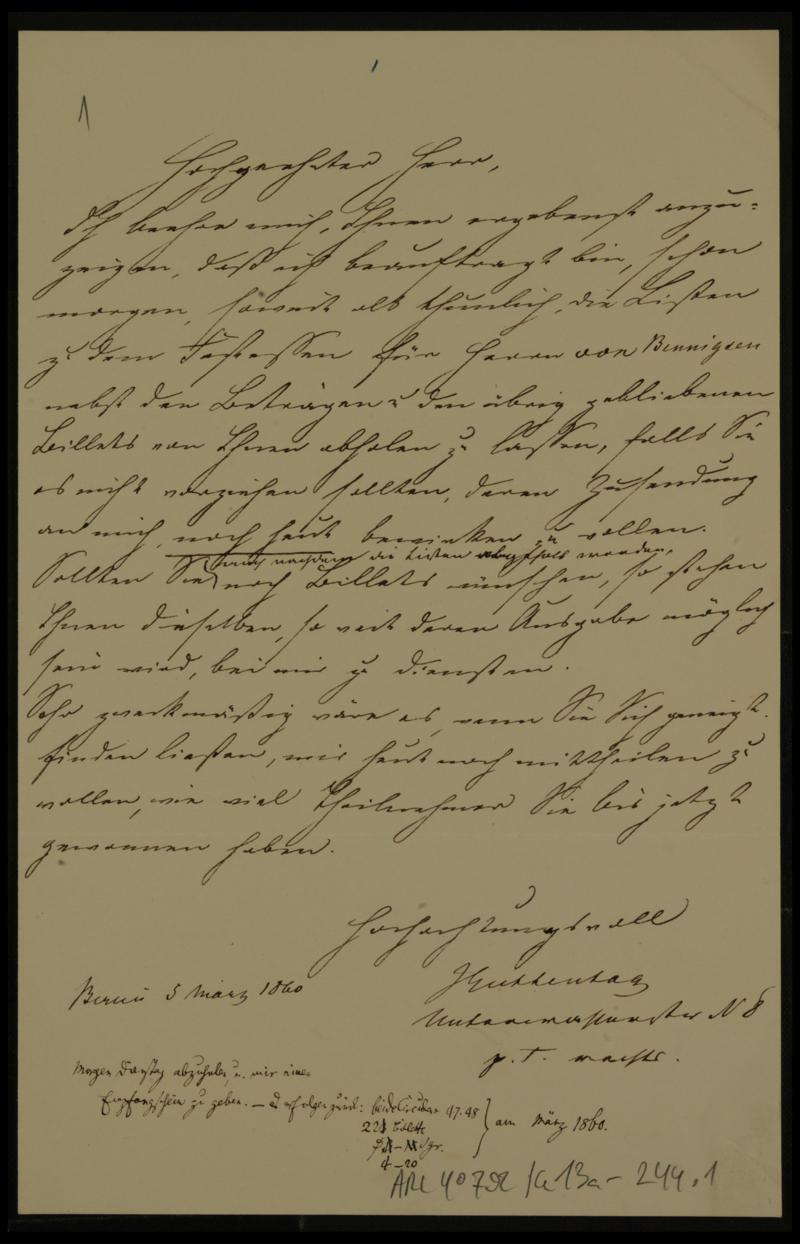 1
Hochgeehrter Herr,
Ich beehre mich, Ihnen ergebenst anzu=
zeigen, daß ich beauftragt bin, schon
morgen, soweit als thunlich, die Listen
zu dem Festessen für Herrn von Bennigsen
nebst den Beträgen u den übrig gebliebenen
Billets von Ihnen abholen zu lassen, falls Sie
es nicht vorziehen sollten, deren Zusendung
an mich, noch heut bewirken zu wollen.
auch nachdem die Listen abgeholt worden,
Sollten Sie noch Billets wünschen, so stehen
Ihnen dieselben, so weit deren Ausgabe möglich
sein wird, bei mir zu Diensten.
Sehr zweckmäßig wäre es, wenn Sie Sich geneigt
finden ließen, mir heut noch mittheilen zu
wollen, wie viel Theilnehmer Sie bis jetzt
gewonnen haben.
Hochachtungsvoll
Guttentag
Berlin 5 März 1860
Unterwasserstr N 8
p. T. rechts.
Morgen Dienstag abzuholen u. mir einen
Empfangschein zu geben. — es erfolgen zurück: 47. 48
221 Billette
Sgr.
4 — 20
am März 1860.
ARC 4072a /C 13a - 244.1